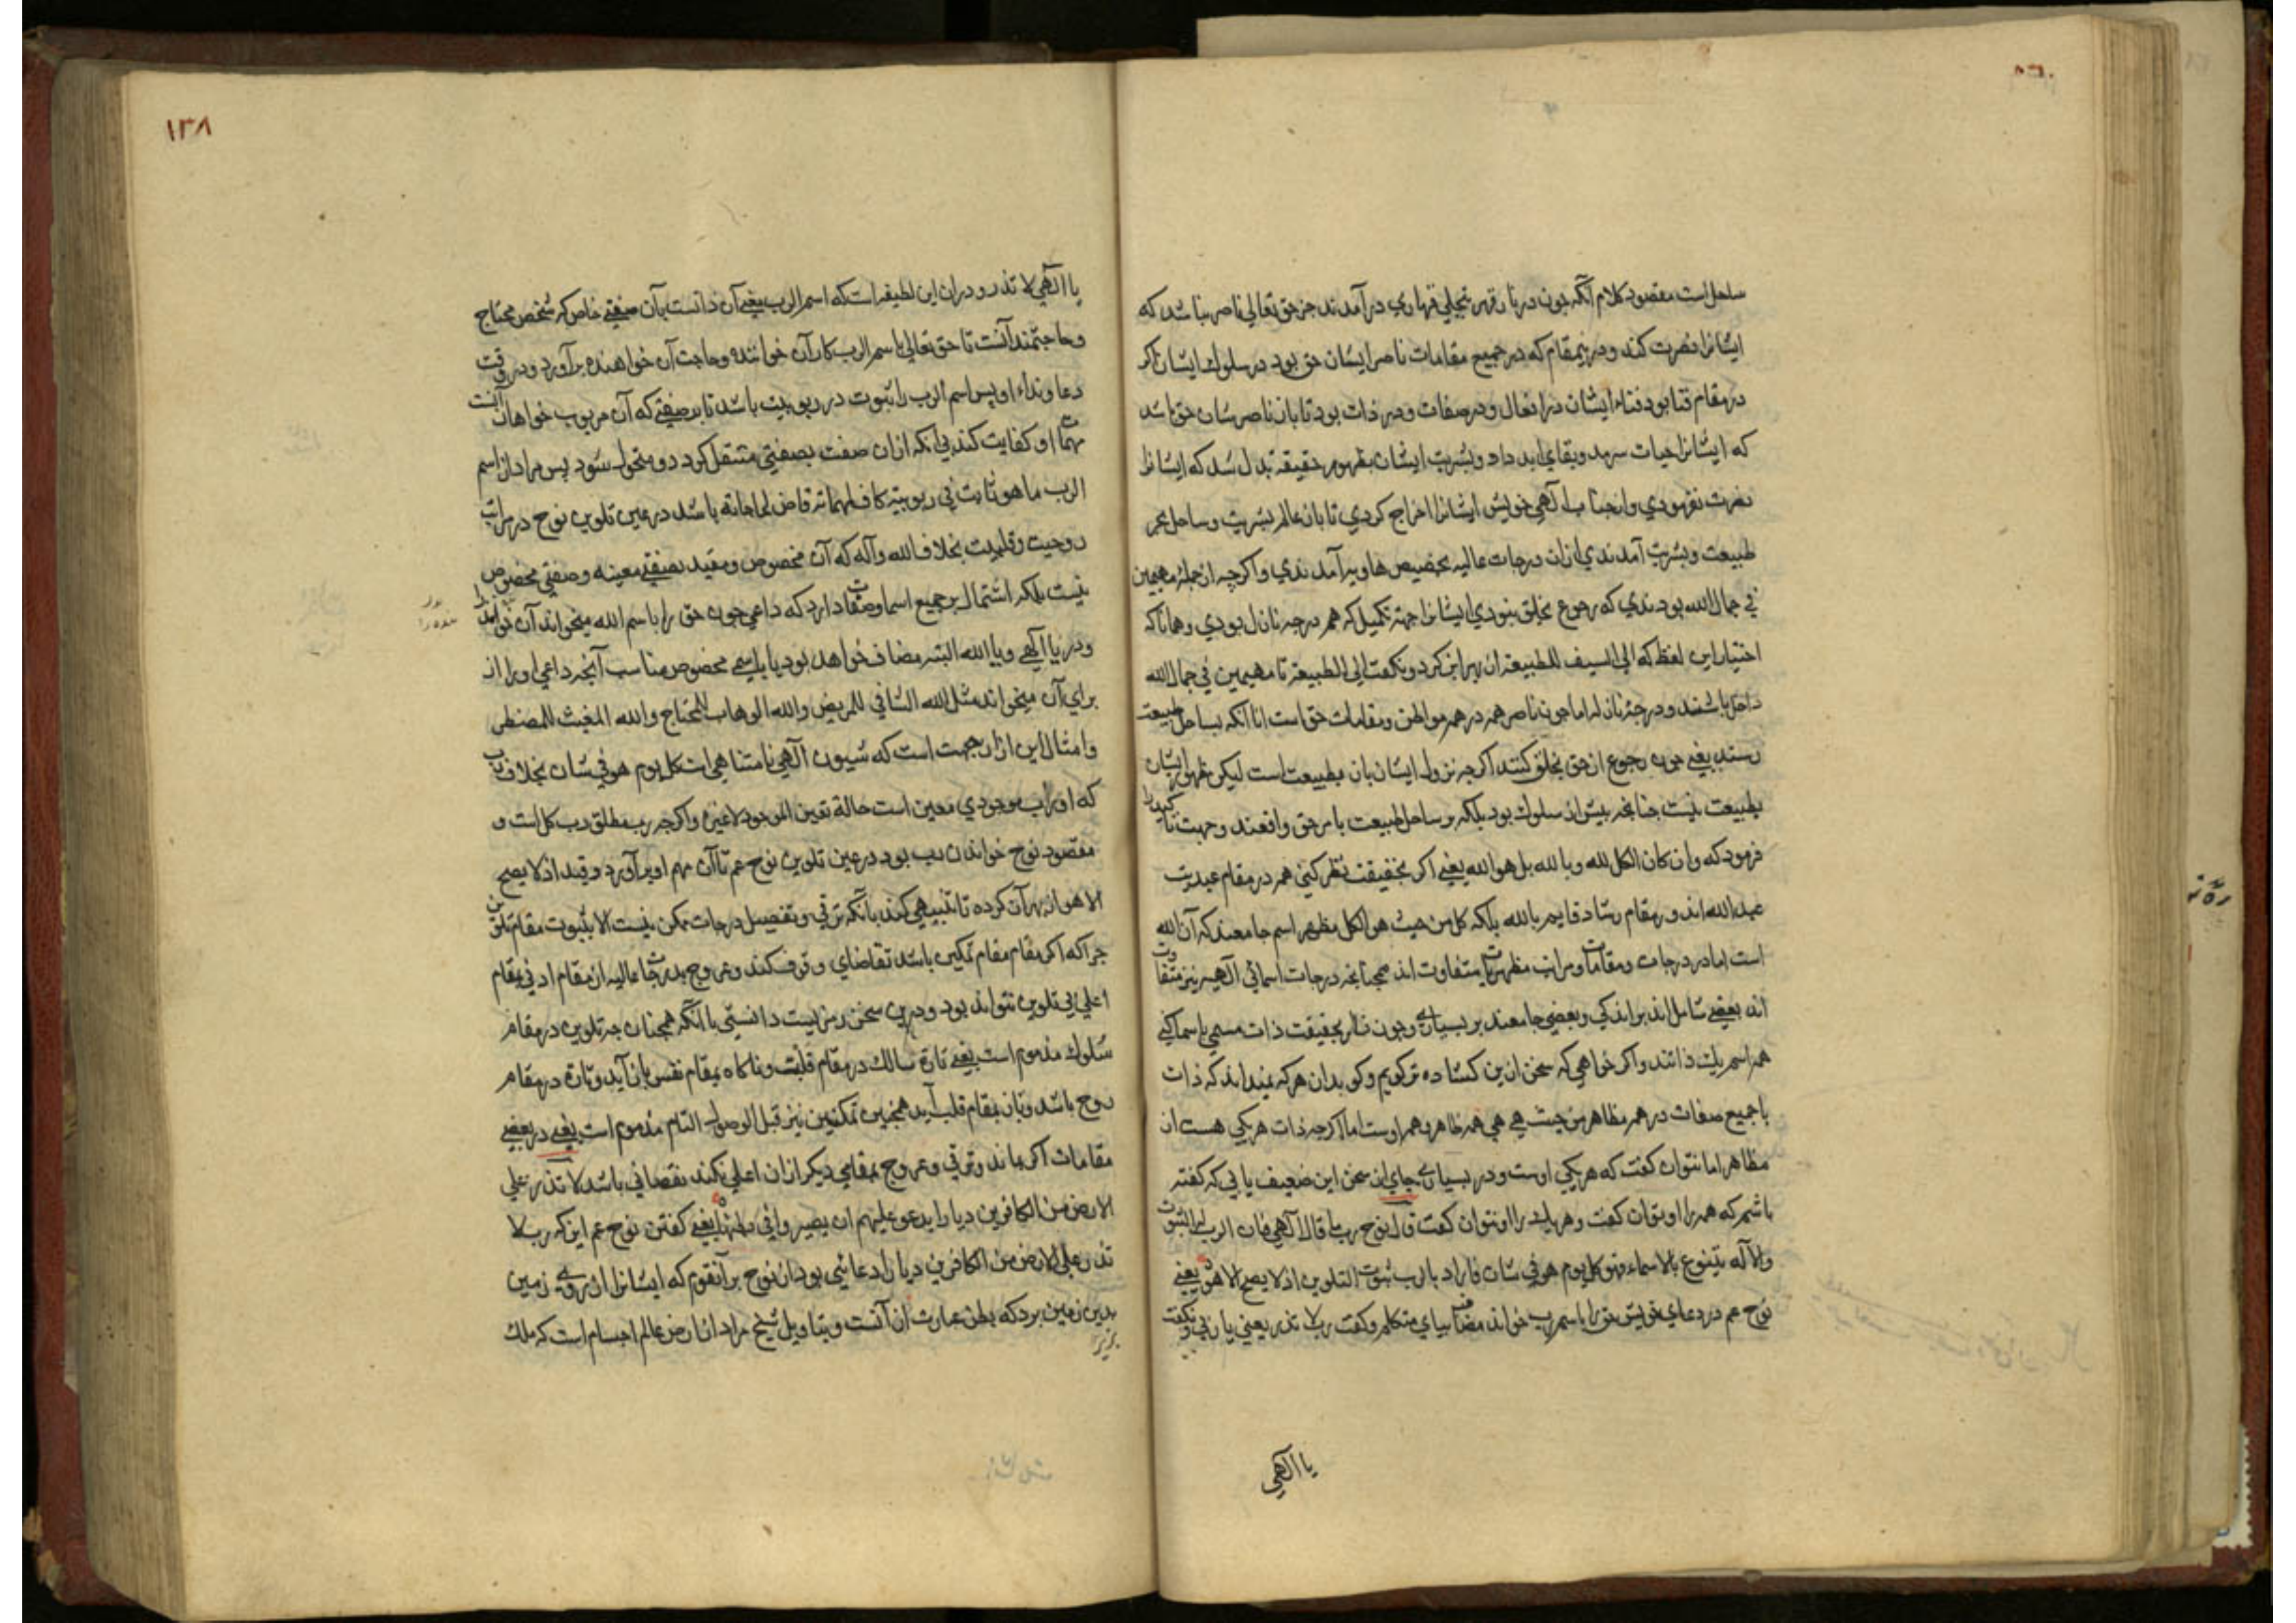 ساحل است مقصود کلام آنکه چون در نار قهر بتجلی قهاری درآمدند جز حق تعالی ناصر نباشد که
ایشانرا نصرت کند ودرینمقام که در جمیع مقامات ناصر ایشان حق بود در سلوک ایشان اگر
در مقام فنا بود فناء ایشان در افعال ودر صفات ودر ذات بود تا باز ناصرشان حق باشد
که ایشانرا حیات سرمد وبقای ابد داد وبشریت ایشان بظهور حقیقة بدل شد که ایشانرا
نصرت نفرمودی واز جناب الهی خویش ایشانرا اخراج کردی تا بان عالم بشریت وساحل بحر
طبیعت وبشریت آمدندی ازان درجات عالیه بحضیض هاویه آمدندی واکرچه از جمله مهیمین
فی جمال الله بودندی که رجوع بخلق بنودی ایشانرا جهة تکمیل که هم درجه نازل بودی وهمانا که
اختیار این لفظ که الی السیف للطبیعة از بهر این کرد ونکفت الی الطبیعة تا مهیمین فی جمال الله
داخل باشند ودرجه نازله اما چون ناصر همه در همه مواطن ومقامات حق است انا انکه بساحل طبیعت
رسند یعنی چون رجوع از حق بخلق کنند اکرچه نزول ایشان بان بطبیعت است لیکن ظهور ایشان
بطبیعت نیست چنانچه پیش از سلوک بود بلکه بر ساحل طبیعت بامر حق واقعند وجهت تاکید را
فرمود که وان کان الکل لله وبالله بل هو الله یعنی اکر بحقیقت نظر کنی همه در مقام عبدیت
عبد الله اند ودر مقام رشاد قایم بالله بلکه کل من حیث هو الکل مظهر اسم جامعند که آن الله
است اما در درجات ومقامات ومراتب مظهریت متفاوت اند همچنانچه درجات اسمائی الهیه نیز متفاوت
اند بعضی شامل اند بر اندکی وبعضی جامعند بر بسیاری وچون نظر بحقیقت ذات مسمی باسما کنی
همه اسم یک ذاتند واکر خواهی که سخن ازین کشاده تر کویم وکو بدان هرکه میداند که ذات
با جمیع صفات در همه مظاهر من حیث هی هی همه ظاهر وهمه اوست اما اکرچه ذات هر یکی هست ان
مظاهر اما نتوان کفت که هر یکی اوست ودر بسیاری جای این سخن این ضعیف یابی که کفته
باشم که همه را او توان کفت وهر یک را او نتوان کفت قال نوح رب ما قال الهی فان الرب له الثبوت
والاله یتنوع بالاسماء فهو کل یوم هو فی شان فاراد بالرب ثبوت التلوین اذ لا یصح الا هو یعنی
نوح عم در دعای خویش حق را باسم رب خواند مضاف بیای متکلم وکفت رب لا تذر یعنی یا ربی ونکفت
یا الهی
١٣٨
یا الهی لا تذر ودر ان این لطیفه است که اسم الرب یعنی آن ذاتست بآن صفتی خاص که شخص محتاج
وحاجتمند آنست تا حق تعالی باسم الرب کار آن خواننده وحاجت آن خواهنده برآورد ودر وقت
دعا ونداء او پس اسم الرب را ثبوت در ربوبیت باشد تا بر صفتی که آن مربوب خواهان آنست
مهمات او کفایت کند بی انکه ازان صفت بصفتی منتقل کردد ومتحول شود پس مراد از اسم
الرب ما هو ثابت فی ربوبیته کاف لمهماته قاض لحاجاته باشد در عین تلوین نوح در مراتب
روحیت وقلبیت بخلاف الله واله که آن مخصوص ومقید بصفتی معینه وصفتی مخصوص
نیست بلکه اشتمال بر جمیع اسما وصفات دارد که داعی چون حق را باسم الله میخواند آن
ودر یا الهی ویا الله البته مضاف خواهد بود یا باسمی مخصوص مناسب آنچه داعی اورا از
برای آن میخواند مثل الله الشافی للمریض والله الوهاب للمحتاج والله المغیث للمضطر
وامثال این ازان جهت است که شیون الهی نا متناهی است کل یوم هو فی شان بخلاف رب
که او رب موجودی معین است حالة تعین الموجود لا غیره واکرچه رب مطلق رب کل است و
مقصود نوح خواندن رب بود در عین تلوین نوح عم تا آن مهم او برآورد وقید اذ لا یصح
الا هو از بهر آن کرده تا تنبیهی کند بانکه ترقی وتفصیل درجات ممکن نیست الا بثبوت مقام تلوین
چراکه اکر مقام مقام تمکین باشد تقاضای وقوف کند وعروج بدرجات عالیه از مقام ادنی بمقام
اعلی بی تلوین نتواند بود ودرین سخن رمزیست دانستی با انکه همچنان چه تلوین در مقام
سلوک مذموم است یعنی تارة سالک در مقام قلبست وناکاه بمقام نفس باز آید وتارة در مقام
روح باشد وباز بمقام قلب آید همچنین تمکین نیز قبل الوصول التام مذموم است یعنی در بعضی
مقامات اکر بماند وترقی وعروج بمقامی دیکر ازان اعلی نکند نقصانی باشد لا تذر علی
الارض من الکافرین دیارا یدعو علیهم ان یصیروا فی بطنها یعنی کفتن نوح عم این که رب لا
تذر علی الارض من الکافرین دیارا دعائی بود از نوح بر آنقوم که ایشانرا از روی زمین
بدین زمین برد که بطن عبارت از آنست وبتاویل شیخ مراد از ارض عالم اجسام است که ملک